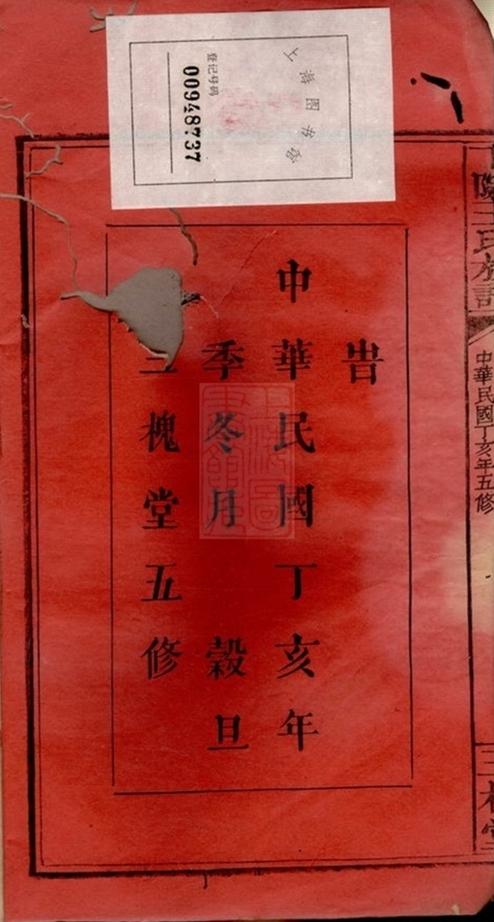 上海图书馆
登记号码
00948737
王氏族譜
中華民國丁亥年五修
三槐堂
旹
中華民國丁亥年
季冬月 穀旦
三槐堂五修